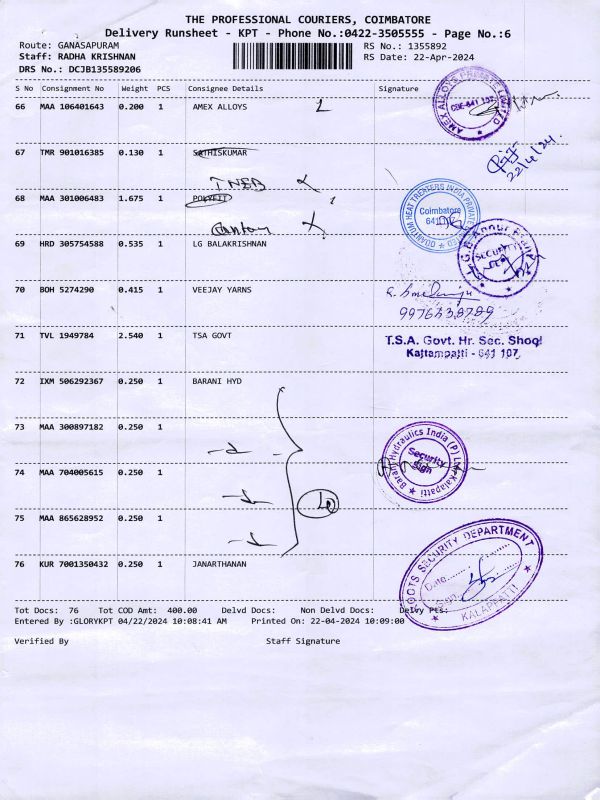 THE PROFESSIONAL COURIERS, COIMBATORE
Delivery Runsheet - KPT - Phone No.:0422-3505555 - Page No.:6
Route: GANASAPURAM
RS No.: 1355892
Staff: RADHA KRISHNAN
RS Date: 22-Apr-2024
DRS No.: DCJB135589206
S No Consignment No Weight PCS Consignee Details Signature
66 MAA 106401643 0.200 1 AMEX ALLOYS
AMEX ALLOYS PRIVATE LIMITED
CBE-641 107
67 TMR 901016385 0.130 1 SATHISKUMAR
22/4/24.
TNEB
68 MAA 301006483 1.675 1
QUANTUM HEAT TREATERS INDIA PRIVATE LIMITED
Coimbatore
69 HRD 305754588 0.535 1 LG BALAKRISHNAN
SECURITY
70 BOH 5274290 0.415 1 VEEJAY YARNS
71 TVL 1949784 2.540 1 TSA GOVT
T.S.A. Govt. Hr. Sec. Shool
Kattampatti - 641 107.
72 IXM 506292367 0.250 1 BARANI HYD
73 MAA 300897182 0.250 1
Barani Hydraulics India (P) Ltd Kalapatti
Security
Sign
74 MAA 704005615 0.250 1
75 MAA 865628952 0.250 1
76 KUR 7001350432 0.250 1 JANARTHANAN
ROOTS SECURITY DEPARTMENT
Date
Sign
KALAPPATTI
Tot Docs: 76 Tot COD Amt: 400.00 Delvd Docs: Non Delvd Docs: Delvy Pts:
Entered By :GLORYKPT 04/22/2024 10:08:41 AM Printed On: 22-04-2024 10:09:00
Verified By Staff Signature